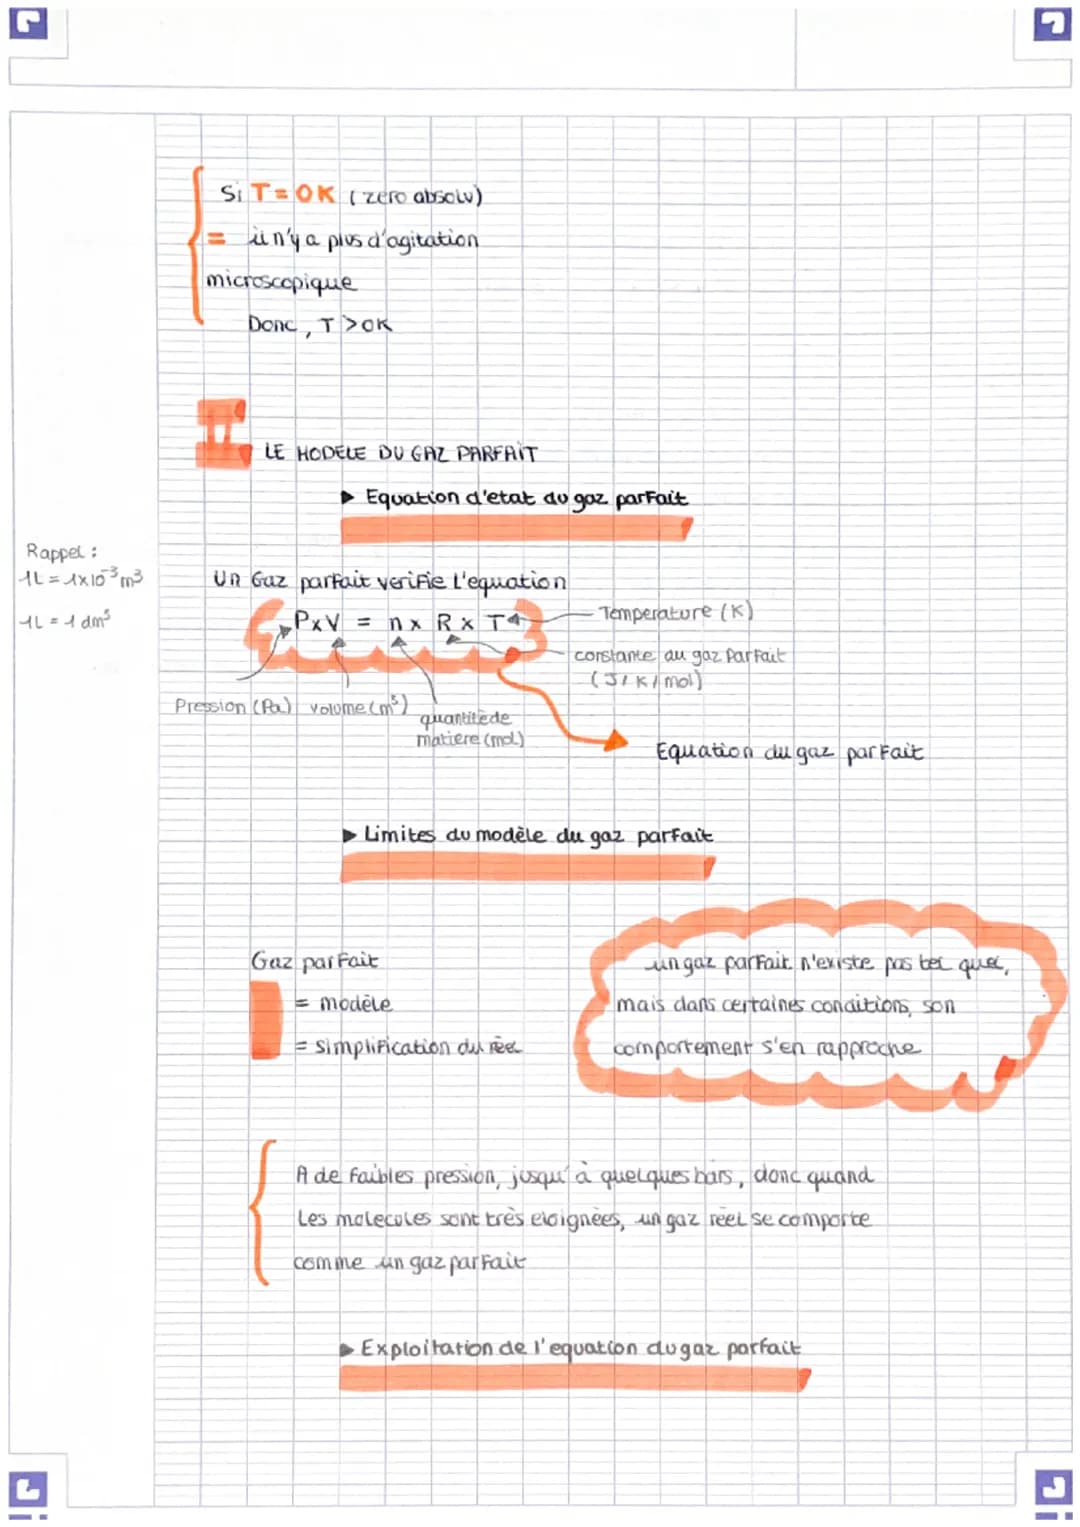 Si T=0K (zero absolu)
= il n'y a plus d'agitation
microscopique
Donc, T >0K
II
LE MODELE DU GAZ PARFAIT
▶ Equation d'etat du gaz parfait
Rappel :
1L = 1x10⁻³ m³
1L = 1 dm³
Un Gaz parfait verifie l'equation
PxV = nx R x T
Temperature (K)
constante du gaz Parfait
(J/K/mol)
Pression (Pa)
volume (m³)
quantité de
matiere (mol)
Equation du gaz parfait
▶ Limites du modèle du gaz parfait
Gaz parfait
= modèle
= simplification du réel
un gaz parfait n'existe pas tel quel,
mais dans certaines conditions, son
comportement s'en rapproche
A de faibles pression, jusqu'à quelques bars, donc quand
les molecules sont très eloignées, un gaz réel se comporte
comme un gaz parfait
▶ Exploitation de l'equation du gaz parfait